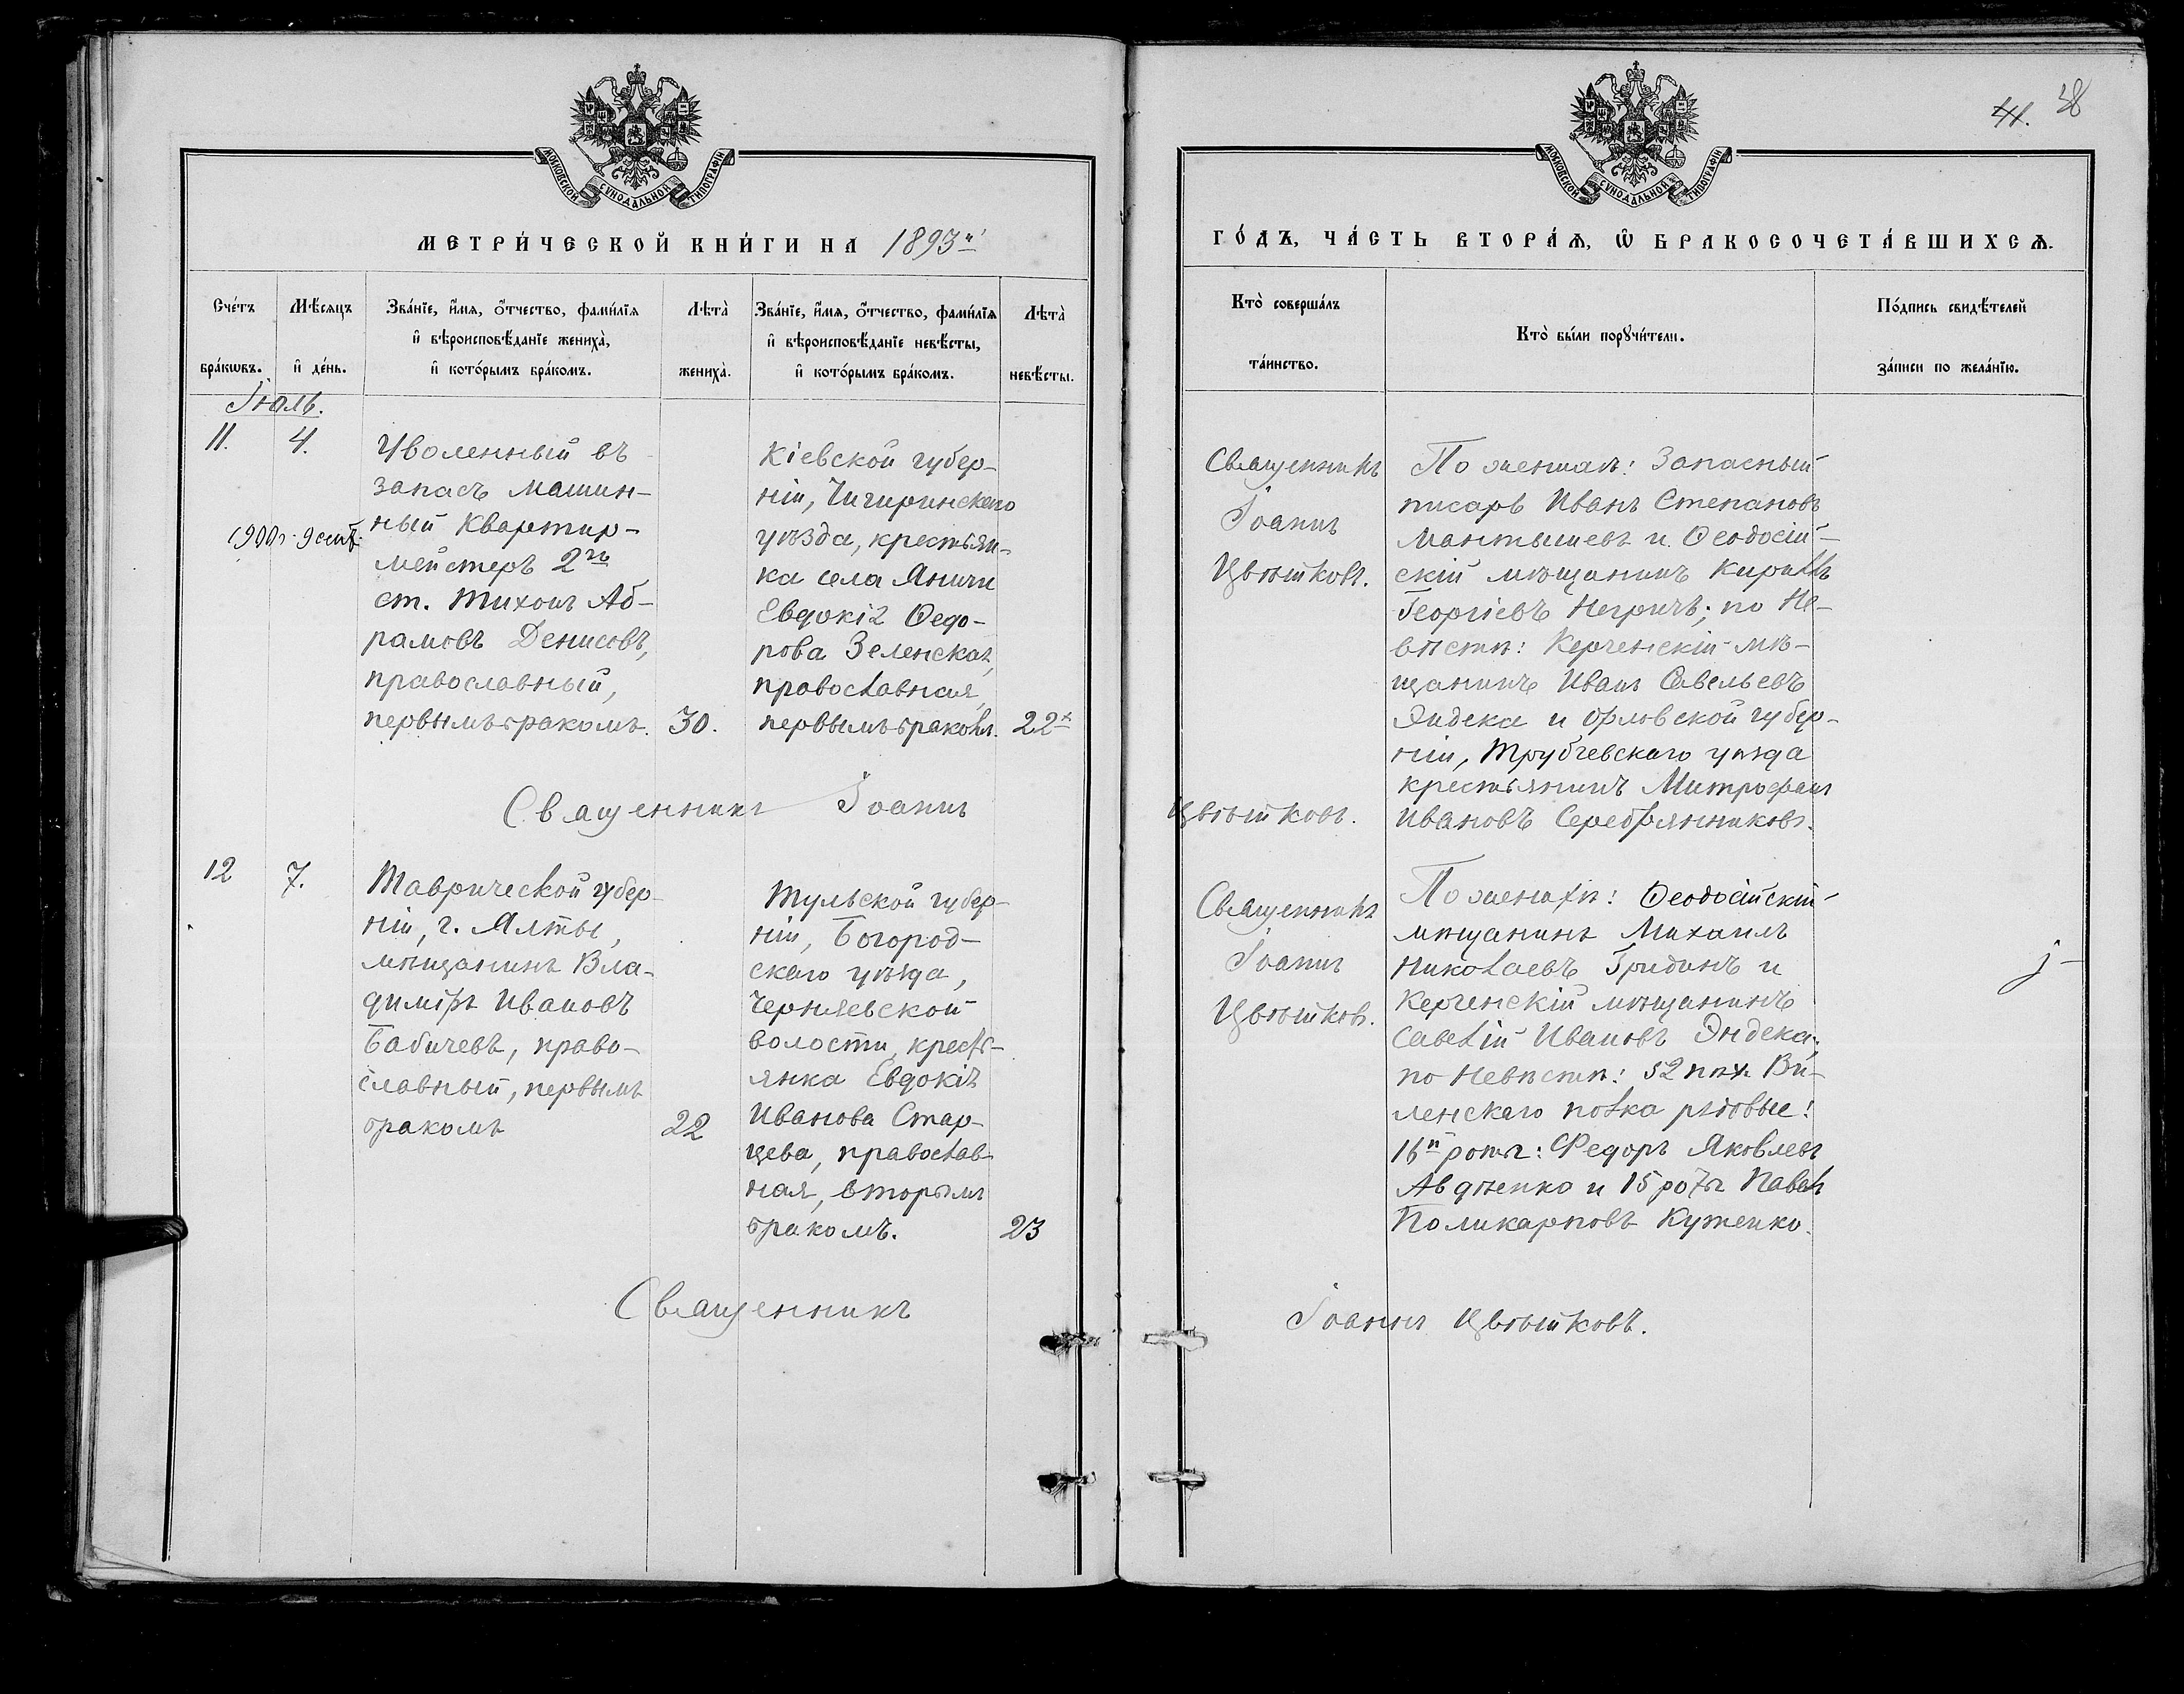 МОСКОВСКОЙ СѴНОДАЛЬНОЙ ТИПОГРАФІИ
МЕТРИ́ЧЕСКОЙ КНИ́ГИ НА 1893й
Сче́тъ бра́кѡвъ.
Мѣ́сяцъ и҆ де́нь.
Зва́нїе, и҆́мѧ, ѻ҆́тчество, фами́лїѧ
и҆ вѣроисповѣ́данїе женихà,
и҆ кото́рымъ бра́комъ.
Лѣтà женихà.
Зва́нїе, и҆́мѧ, ѻ҆́тчество, фами́лїѧ
и҆ вѣроисповѣ́данїе невѣ́сты,
и҆ кото́рымъ бра́комъ.
Лѣтà невѣ́сты.
Іюль.
11. 4.
1900 г. 9 сент.
Уволенный въ
запасъ машин-
ный квартир-
мейстеръ 2го
ст. Тихонъ Аб-
рамовъ Денисовъ,
православный,
первымъ бракомъ. 30.
Кіевской губер-
ніи, Чигиринскаго
уѣзда, крестьян-
ка села Яничи
Евдокія Ѳедо-
рова Зеленская,
православная,
первымъ бракомъ. 22х
Священникъ Іоаннъ
12 7.
Таврической губер-
ніи, г. Ялты,
мѣщанинъ Вла-
диміръ Ивановъ
Бабичевъ, право-
славный, первымъ
бракомъ 22
Тульской губер-
ніи, Богород-
скаго уѣзда,
Черняевской
волости, кресть-
янка Евдокія
Иванова Стар-
цева, православ-
ная, вторымъ
бракомъ. 23
Священникъ
41. 38
МОСКОВСКОЙ СѴНОДАЛЬНОЙ ТИПОГРАФІИ
ГО́ДЪ, ЧА́СТЬ ВТОРА́Ѧ, Ѽ БРАКОСОЧЕТА́ВШИХСѦ.
Ктò соверша́лъ
та́инство.
Ктò бы́ли порꙋчи́тели.
По́дпись свидѣ́телей
за́писи по жела́нїю.
Священникъ
Іоаннъ
Цвѣтковъ.
По женихѣ: Запасный
писарь Иванъ Степановъ
Мантышевъ и Ѳеодосій-
скій мѣщанинъ Кириллъ
Георгіевъ Негричъ; по не-
вѣстѣ: Керченскій мѣ-
щанинъ Иванъ Савельевъ
Эндека и Орловской губер-
ніи, Трубчевскаго уѣзда
крестьянинъ Митрофанъ
Цвѣтковъ. Ивановъ Серебрянниковъ.
Священникъ
Іоаннъ
Цвѣтковъ.
По женихѣ: Ѳеодосійскій
мѣщанинъ Михаилъ
Николаевъ Гридинъ и
Керченскій мѣщанинъ
Савелій Ивановъ Эндека;
по невѣстѣ: 52 пѣх. Ви-
ленскаго полка рядовые:
16й роты: Федоръ Яковлевъ
Авдѣенко и 15 роты Павелъ
Поликарповъ Куженко.
Іоаннъ Цвѣтковъ.